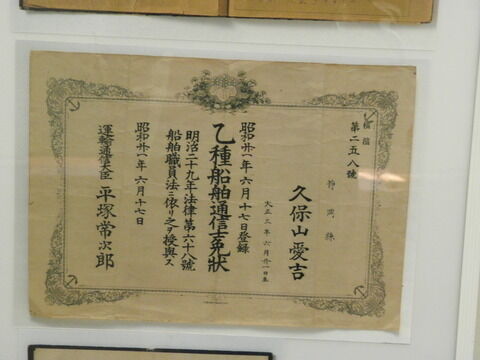 第二五八號
静岡縣
久保山愛吉
大正三年六月廿一日生
昭和廿一年六月十七日登録
乙種船舶通信士免狀
明治二十九年法律第六十八號
船舶職員法ニ依リ之ヲ授與ス
昭和廿一年六月十七日
運輸通信大臣 平塚常次郎